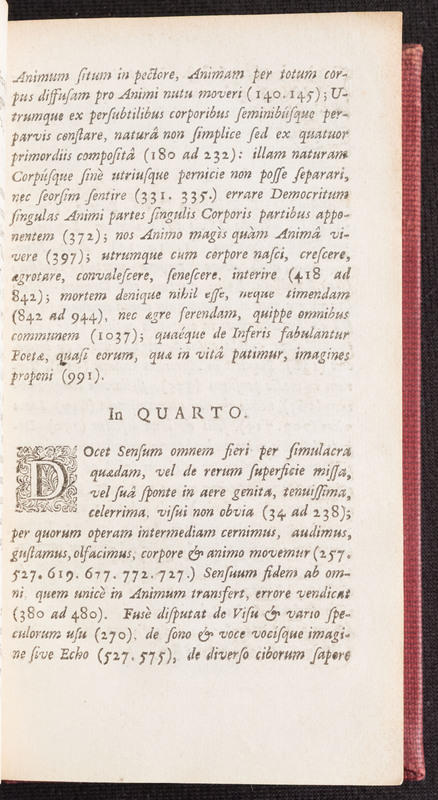 Animum ſitum in pectore, Animam per totum cor-
pus diffuſam pro Animi nutu moveri (140.145); U-
trumque ex perſubtilibus corporibus ſeminibúſque per-
parvis conſtare, naturâ non ſimplice ſed ex quatuor
primordiis compoſitâ (180 ad 232): illam naturam
Corpúſque ſinè utriuſque pernicie non poſſe ſeparari,
nec ſeorſim ſentire (331. 335.) errare Democritum
ſingulas Animi partes ſingulis Corporis partibus appo-
nentem (372); nos Animo magìs quàm Animâ vi-
vere (397); utrumque cum corpore naſci, creſcere,
ægrotare, convaleſcere, ſeneſcere, interire (418 ad
842); mortem denique nihil eſſe, neque timendam
(842 ad 944), nec ægre ferendam, quippe omnibus
communem (1037); quaéque de Inferis fabulantur
Poetæ, quaſi eorum, quæ in vitâ patimur, imagines
proponi (991).
In QUARTO.
DOcet Senſum omnem fieri per ſimulacra
quædam, vel de rerum ſuperficie miſſa,
vel ſuâ ſponte in aere genita, tenuiſſima,
celerrima, viſui non obvia (34 ad 238);
per quorum operam intermediam cernimus, audimus,
guſtamus, olfacimus, corpore & animo movemur (257.
527. 619. 677. 772. 727.) Senſuum fidem ab om-
ni, quem unicè in Animum transfert, errore vendicat
(380 ad 480). Fusè diſputat de Viſu & vario ſpe-
culorum uſu (270), de ſono & voce vocíſque imagi-
ne ſive Echo (527.575), de diverſo ciborum ſapore